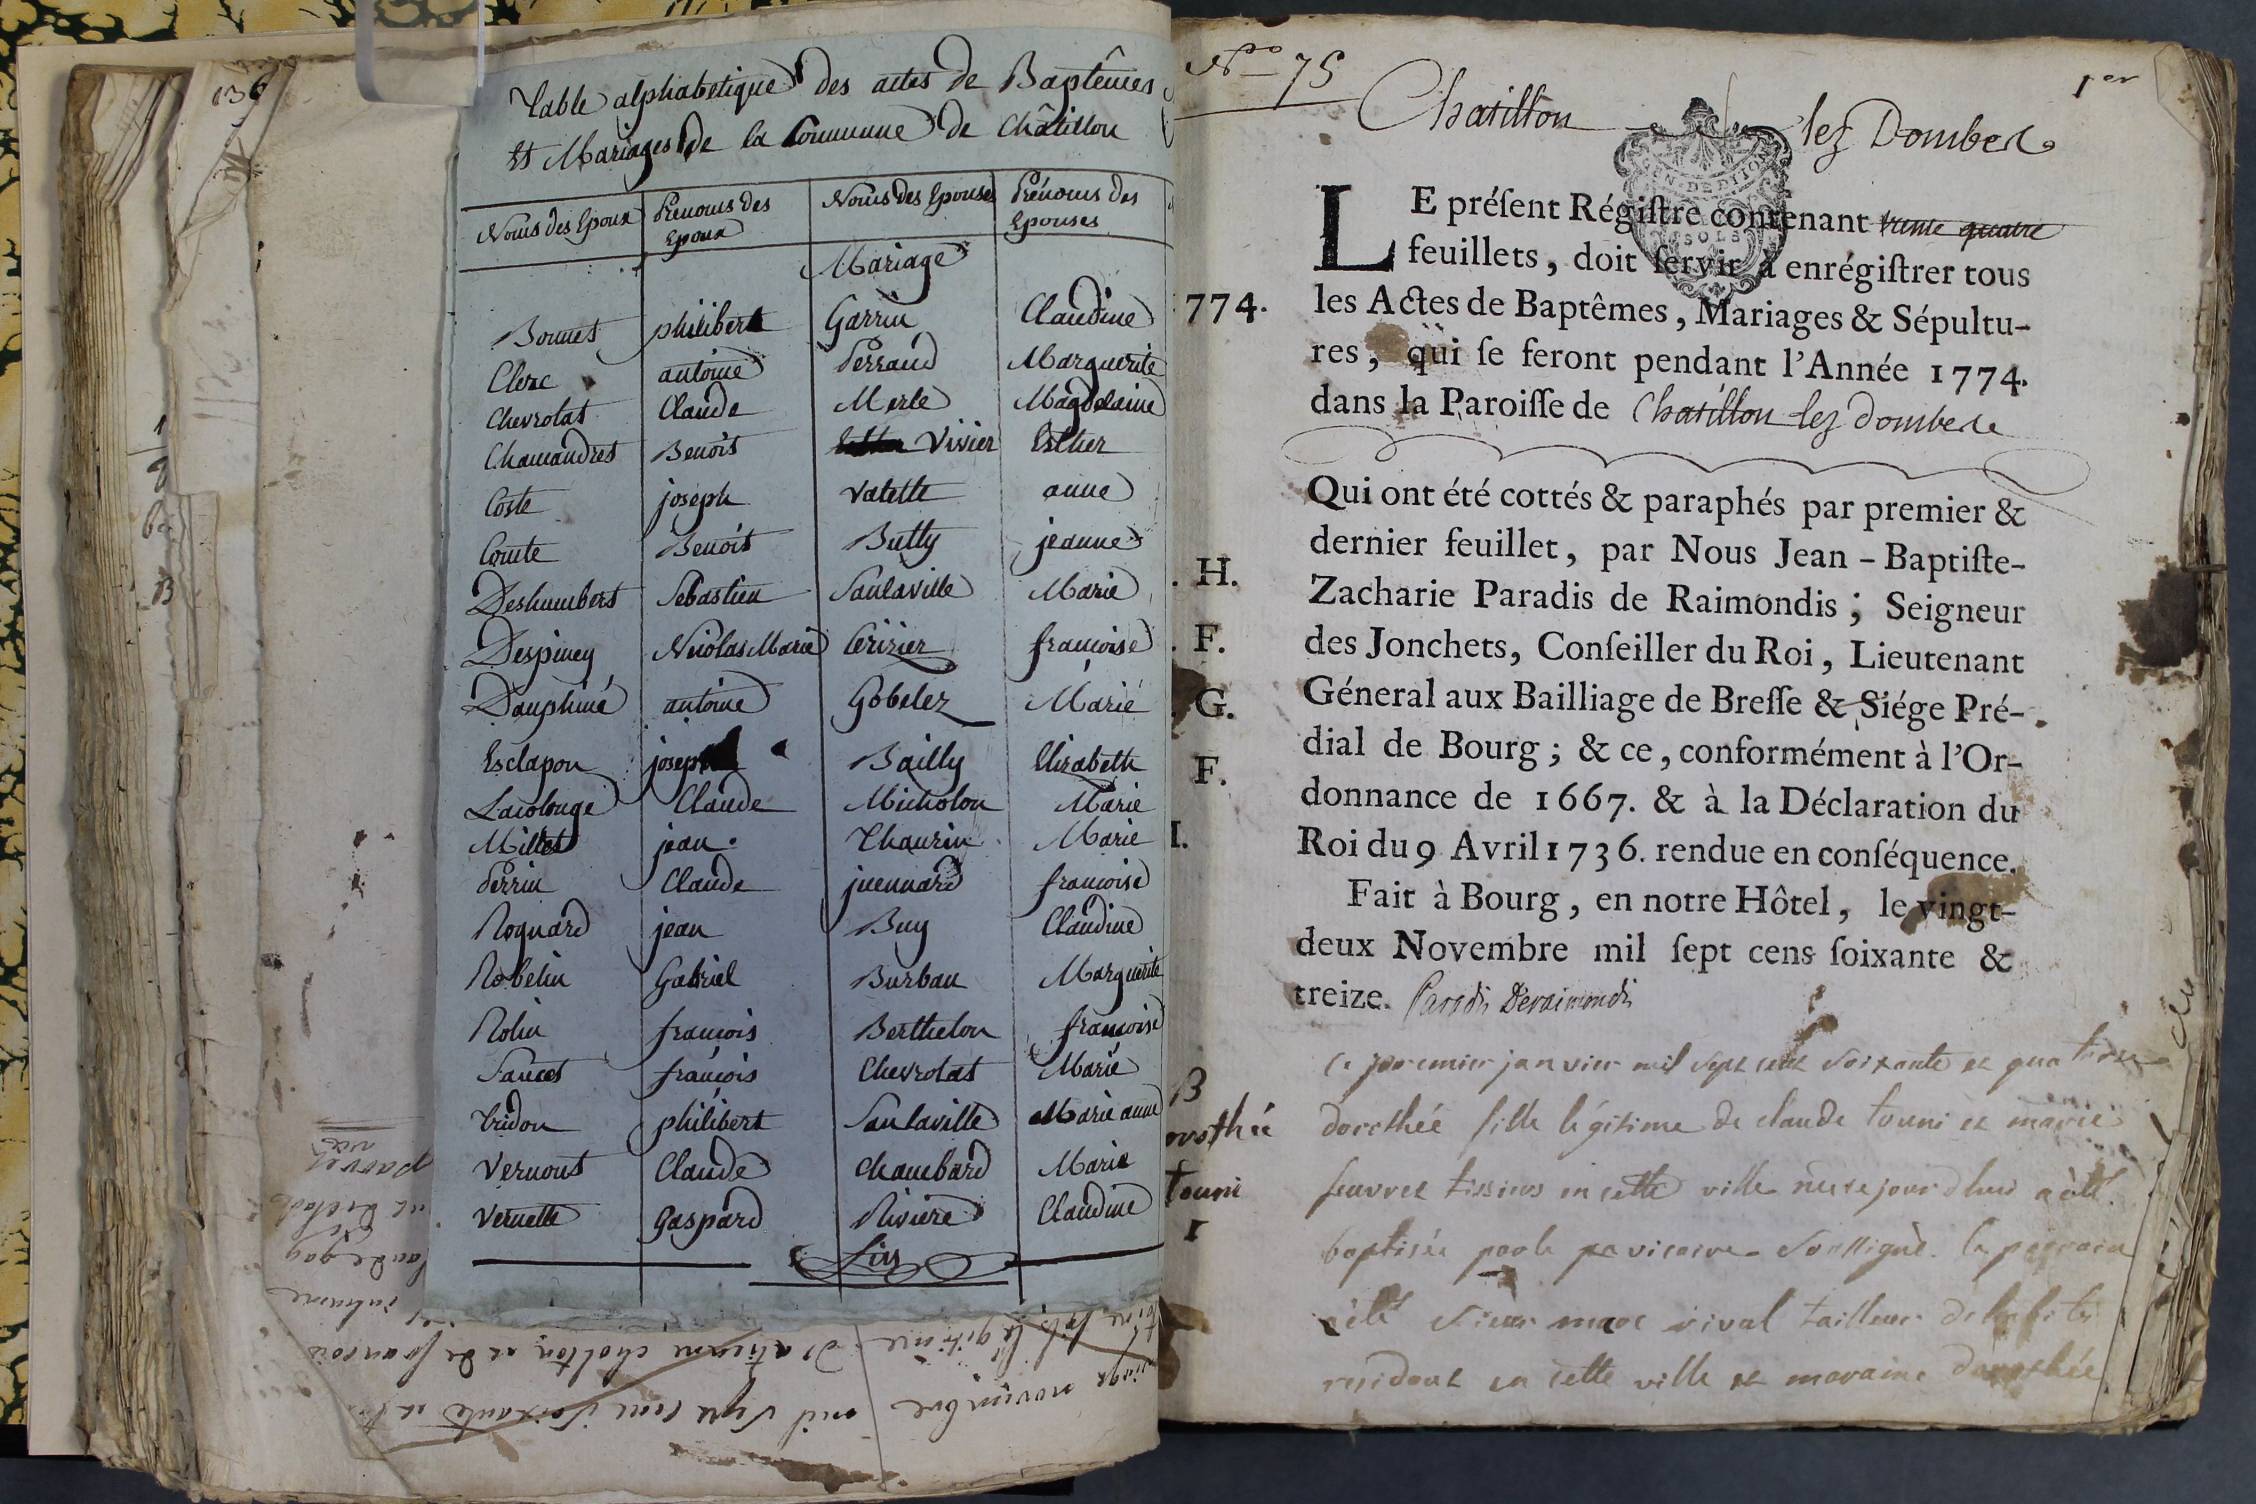 136
Table alphabetique des actes de Baptêmes
Et Mariages de la Commune de Châtillon
Noms des Epoux Prénoms des Epoux Noms des Epouses Prénoms des Epouses
Mariage
Bonnet philibert Garrin Claudine
Clerc antoine Perraud Marguerite
Chevrolat Claude Merle Magdelaine
Chamandret Benoit Vivier Esther
Coste joseph Vatette anne
Comte Benoit Butty jeanne
Deshumbert Sebastien Saulaville Marie
Despiney Nicolas Marie Cerizier francoise
Dauphiné antoine Gobelez Marie
Esclapon joseph Bailly Elizabeth
Lacolonge Claude Micholon Marie
Millet jean Thaurin Marie
Perrin Claude juennard francoise
Roguard jean Buy Claudine
Robelin Gabriel Burban Marguerite
Rolin francois Berthelon francoise
Sancet francois Chevrolat Marie
Tridon philibert Saulaville Marie anne
Vernout Claude Chambard Marie
Vernette Gaspard Riviere Claudine
Fin
No 75
1er
Chatillon lez Dombes
LE préſent Régiſtre contenant trente quatre
feuillets, doit ſervir à enrégiſtrer tous
les Actes de Baptêmes, Mariages & Sépultu-
res, qui ſe feront pendant l'Année 1774.
dans la Paroiſſe de Chatillon lez Dombes
Qui ont été cottés & paraphés par premier &
dernier feuillet, par Nous Jean-Baptiſte-
Zacharie Paradis de Raimondis; Seigneur
des Jonchets, Conſeiller du Roi, Lieutenant
Géneral aux Bailliage de Breſſe & Siége Pré-
dial de Bourg; & ce, conformément à l'Or-
donnance de 1667. & à la Déclaration du
Roi du 9 Avril 1736. rendue en conſéquence.
Fait à Bourg, en notre Hôtel, le vingt-
deux Novembre mil ſept cens ſoixante &
treize. Paradis Deraimondis
774.
H.
F.
G.
F.
I.
B
orothée
touni
1
le premier janvier mil sept cent soixante et quatorze
dorothée fille légitime de claude touni et marie
feuvret tissier en cette ville née ce jour d'hui a été
baptisée par le vicaire soussigné. le parrain
a été sieur marc rival tailleur d'habits
residant en cette ville et maraine dorothée